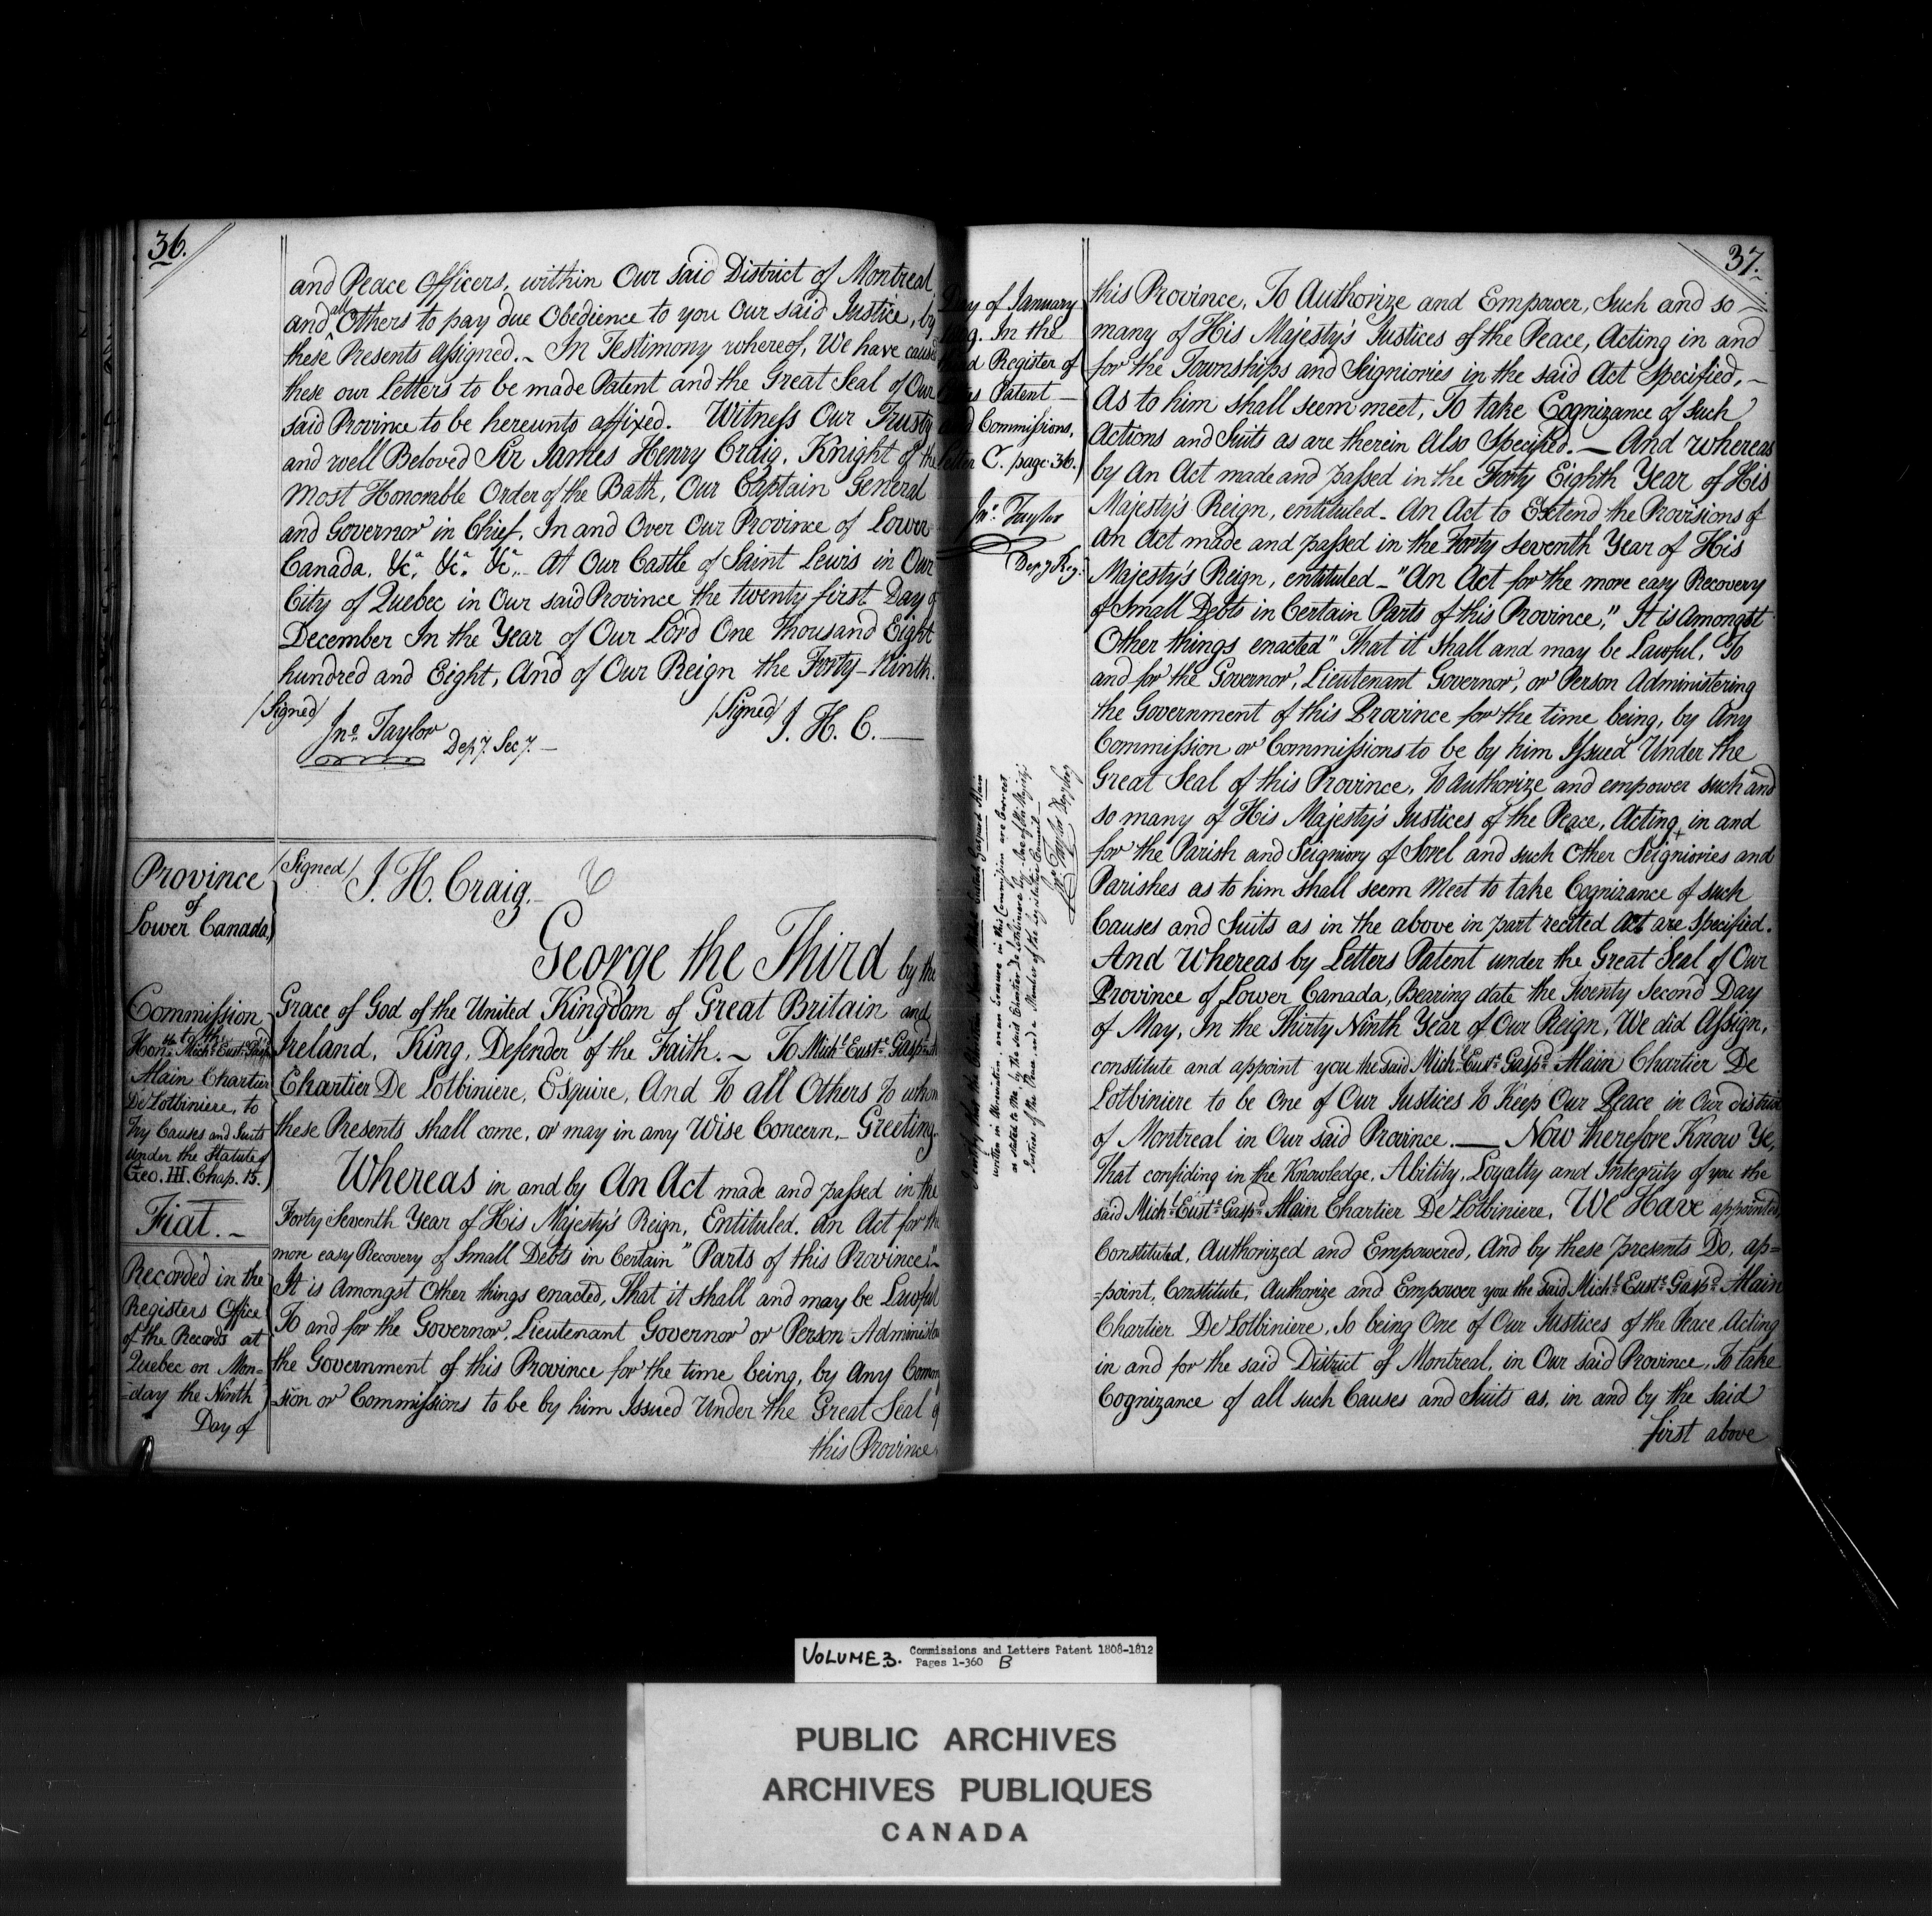 36.
and Peace Officers, within Our said District of Montreal
and all Others to pay due Obedience to you Our said Justice, by
these Presents Assigned. ~ In Testimony whereof, We have caused
these our Letters to be made Patent and the Great Seal of Our
said Province to be hereunto affixed. Witness Our Trusty
and well Beloved Sir James Henry Craig, Knight of the
most Honorable Order of the Bath, Our Captain General
and Governor in Chief, In and Over Our Province of Lower
Canada, &c. &c. &c. At Our Castle of Saint Lewis in Our
City of Quebec in Our said Province the twenty first Day of
December In the Year of Our Lord One Thousand Eight
hundred and Eight, And of Our Reign the Forty-Ninth.
/Signed/ Jno. Taylor Depy. Secy. —
/Signed/ J. H. C. —
Province
of
Lower Canada.
/Signed/ J. H. Craig. —
George the Third by the
Grace of God of the United Kingdom of Great Britain and
Ireland, King, Defender of the Faith. ~ To Michl. Eustc. Gaspd.
Chartier De Lotbiniere, Esquire, And To all Others To whom
these Presents shall come, or may in any Wise Concern, — Greeting.
Whereas in and by An Act made and passed in the
Forty Seventh Year of His Majesty's Reign, Entituled, An Act for the
more easy Recovery of Small Debts in Certain " Parts of this Province," ~
It is Amongst Other things enacted, That it shall and may be Lawful
To and for the Governor, Lieutenant Governor or Person Administer
the Government of this Province for the time being, by Any Commis
sion or Commissions to be by him Issued Under the Great Seal of
this Province
Commission
to the
Honble. Michl. Eustc. Gaspd.
Alain Chartier
De Lotbiniere, to
Try Causes and Suits
under the Statute of
Geo. III. Chap. 15.
Fiat. ~
Recorded in the
Registers Office
of the Records at
Quebec on Mon=
=day the Ninth
Day of
Day of January
In the
Register of
Patent —
Commissions,
Letter C. page 36.
Jno. Taylor
Depy. Reg.
written in Abreviation, are in this Commission are Correct
as stated to Me, by the said Chartier De Lotbiniere Esqr. One of His Majesty's
Justices of the Peace, and a Member of the Legislative Council
Jno Taylor Depy Reg
37.
this Province, To Authorize and Empower, Such and so —
many of His Majesty's Justices of the Peace, Acting in and
for the Townships and Seigniories in the said Act Specified, ~
As to him shall seem meet, To take Cognizance of such
Actions and Suits as are therein Also Specified. — And whereas
by An Act made and passed in the Forty Eighth Year of His
Majesty's Reign, entituled — An Act to Extend the Provisions of
An Act made and passed in the Forty Seventh Year of His
Majesty's Reign, entituled — "An Act for the more easy Recovery
of Small Debts in Certain Parts of this Province," It is Amongst
Other things enacted " That it shall and may be Lawful, To
and for the Governor, Lieutenant Governor, or Person Administering
the Government of this Province for the time being, by Any
Commission or Commissions to be by him Issued Under the
Great Seal of this Province, To authorize and empower such and
so many of His Majesty's Justices of the Peace, Acting in and
for the Parish and Seigniory of Sorel and such Other Seigniories and
Parishes as to him shall seem Meet to take Cognizance of such
Causes and Suits as in the above in part recited Act are Specified.
And Whereas by Letters Patent under the Great Seal of Our
Province of Lower Canada, Bearing date the Twenty Second Day
of May, In the Thirty Ninth Year of Our Reign, We did Assign,
constitute and appoint you the said Michl. Eustc. Gaspd. Alain Chartier De
Lotbiniere to be One of Our Justices to Keep Our Peace in Our district
of Montreal in Our said Province. — Now therefore Know Ye,
That confiding in the Knowledge, Ability, Loyalty and Integrity of you the
said Michl. Eustc. Gaspd. Alain Chartier De Lotbiniere, We Have appointed,
Constituted, Authorized and Empowered, And by these presents Do, ap=
=point, Constitute, Authorize and Empower you the said Michl. Eustc. Gaspd. Alain
Chartier De Lotbiniere, So being One of Our Justices of the Peace, Acting
in and for the said District of Montreal, in Our said Province, To take
Cognizance of all such Causes and Suits as, in and by the said
first above
VOLUME 3. Commissions and Letters Patent 1808-1812
Pages 1-360 B
PUBLIC ARCHIVES
ARCHIVES PUBLIQUES
CANADA